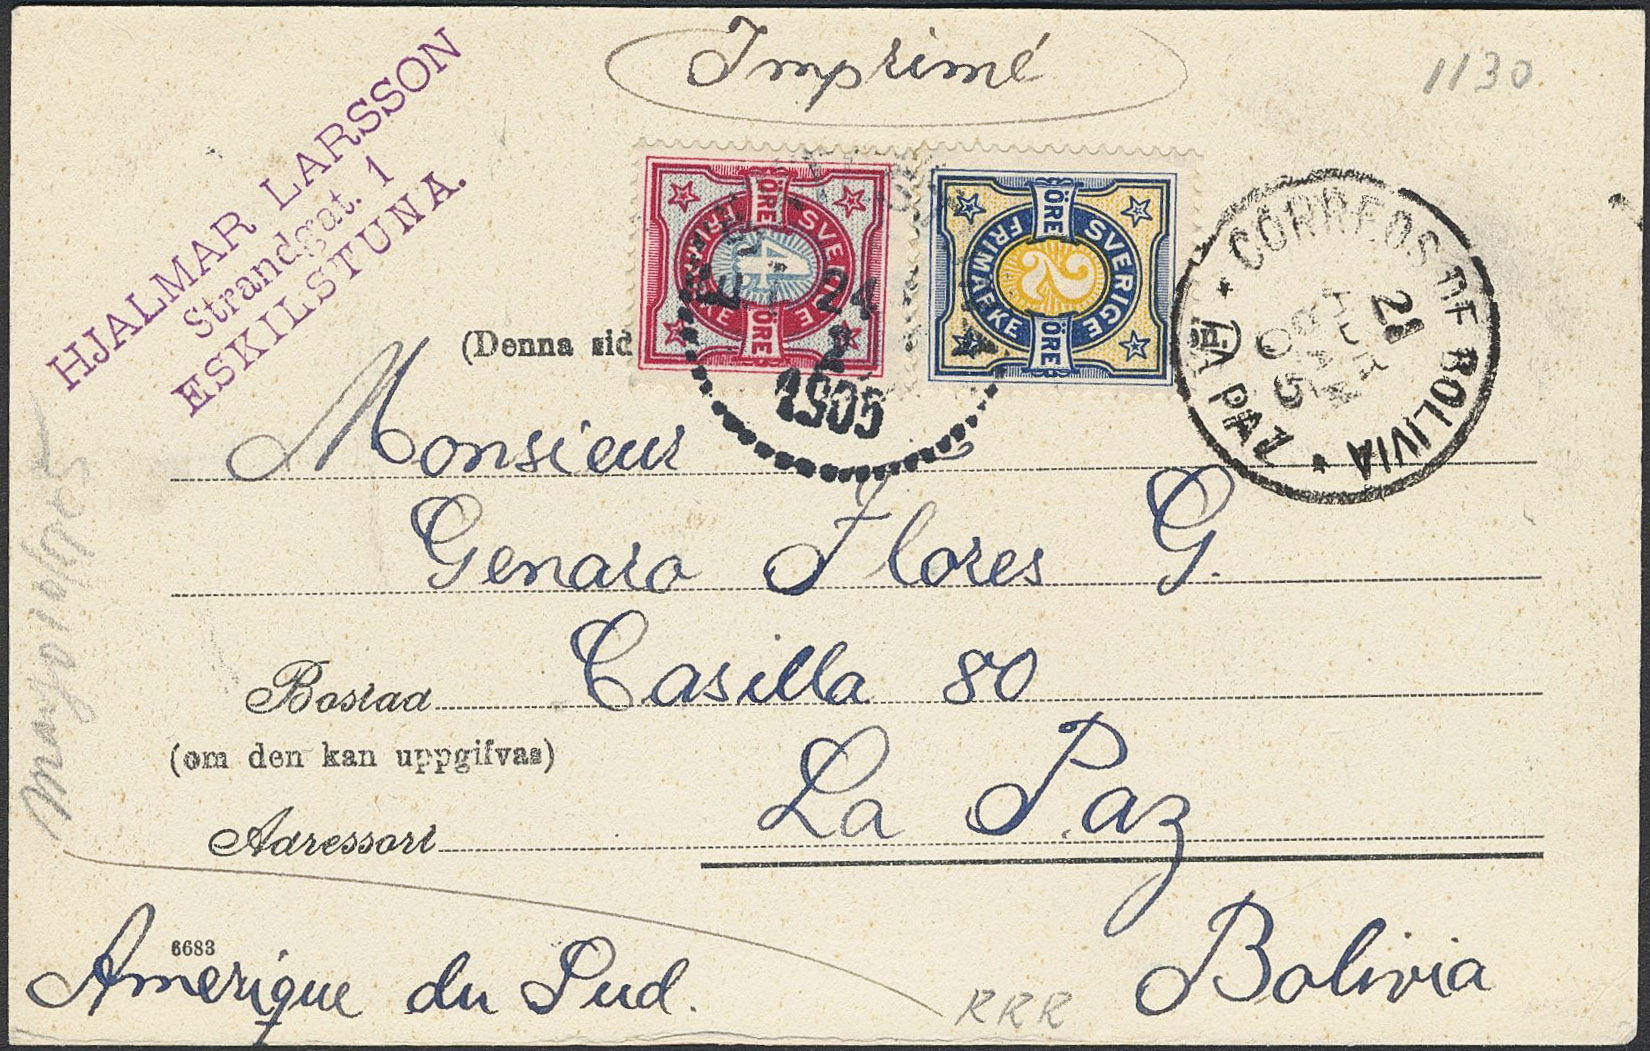 Imprimé
1130
HJALMAR LARSSON
Strandgat. 1
ESKILSTUNA.
4
ÖRE
SVERIGE
FRIMÄRKE
ÖRE
2
ÖRE
SVERIGE
FRIMÄRKE
ÖRE
24
2
1905
CORREOS DE BOLIVIA
LA PAZ
21
ABR
05
(Denna sid
en.)
Monsieur
Genaro Flores G.
Bostad Casilla 80
(om den kan uppgifvas)
Adressort La Paz
Bolivia
6683
Amerique du Sud.
Mayo 10/905
RRR